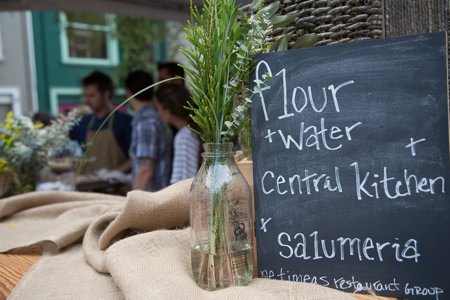 flour
+ water
+
central kitchen
x
salumeria
ne timeas restaurant GROUP